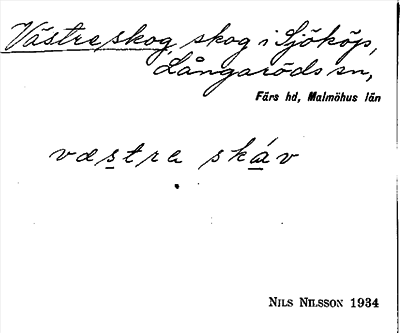 Västraskog, skog i Sjököp,
Långaröds sn,
Färs hd, Malmöhus län
væstra skáv
NILS NILSSON 1934